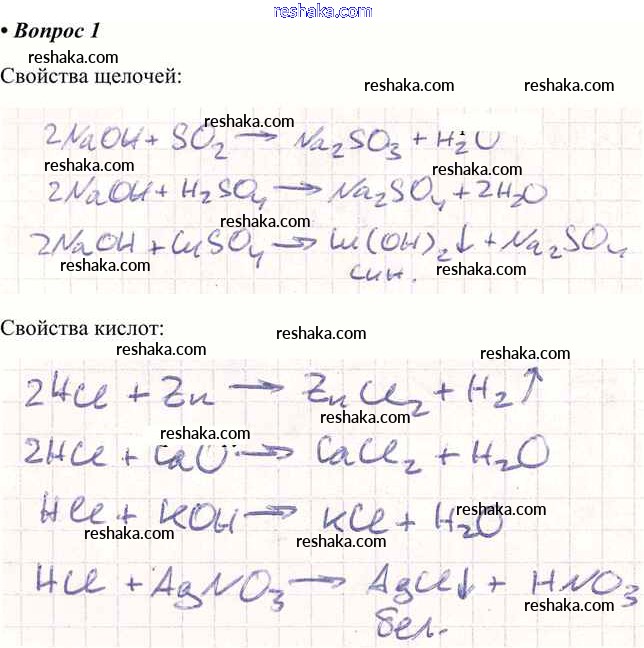 reshaka.com
• Вопрос 1
reshaka.com
Свойства щелочей:
reshaka.com reshaka.com
reshaka.com
2NaOH + SO₂ → Na₂SO₃ + H₂O
reshaka.com reshaka.com
2NaOH + H₂SO₄ → Na₂SO₄ + 2H₂O
reshaka.com
2NaOH + CuSO₄ → Cu(OH)₂↓ + Na₂SO₄
reshaka.com син. reshaka.com
Свойства кислот:
reshaka.com
reshaka.com reshaka.com
2HCl + Zn → ZnCl₂ + H₂↑
reshaka.com
reshaka.com
2HCl + CaO → CaCl₂ + H₂O
reshaka.com
HCl + KOH → KCl + H₂O
reshaka.com reshaka.com
HCl + AgNO₃ → AgCl↓ + HNO₃
бел. reshaka.com
reshaka.com